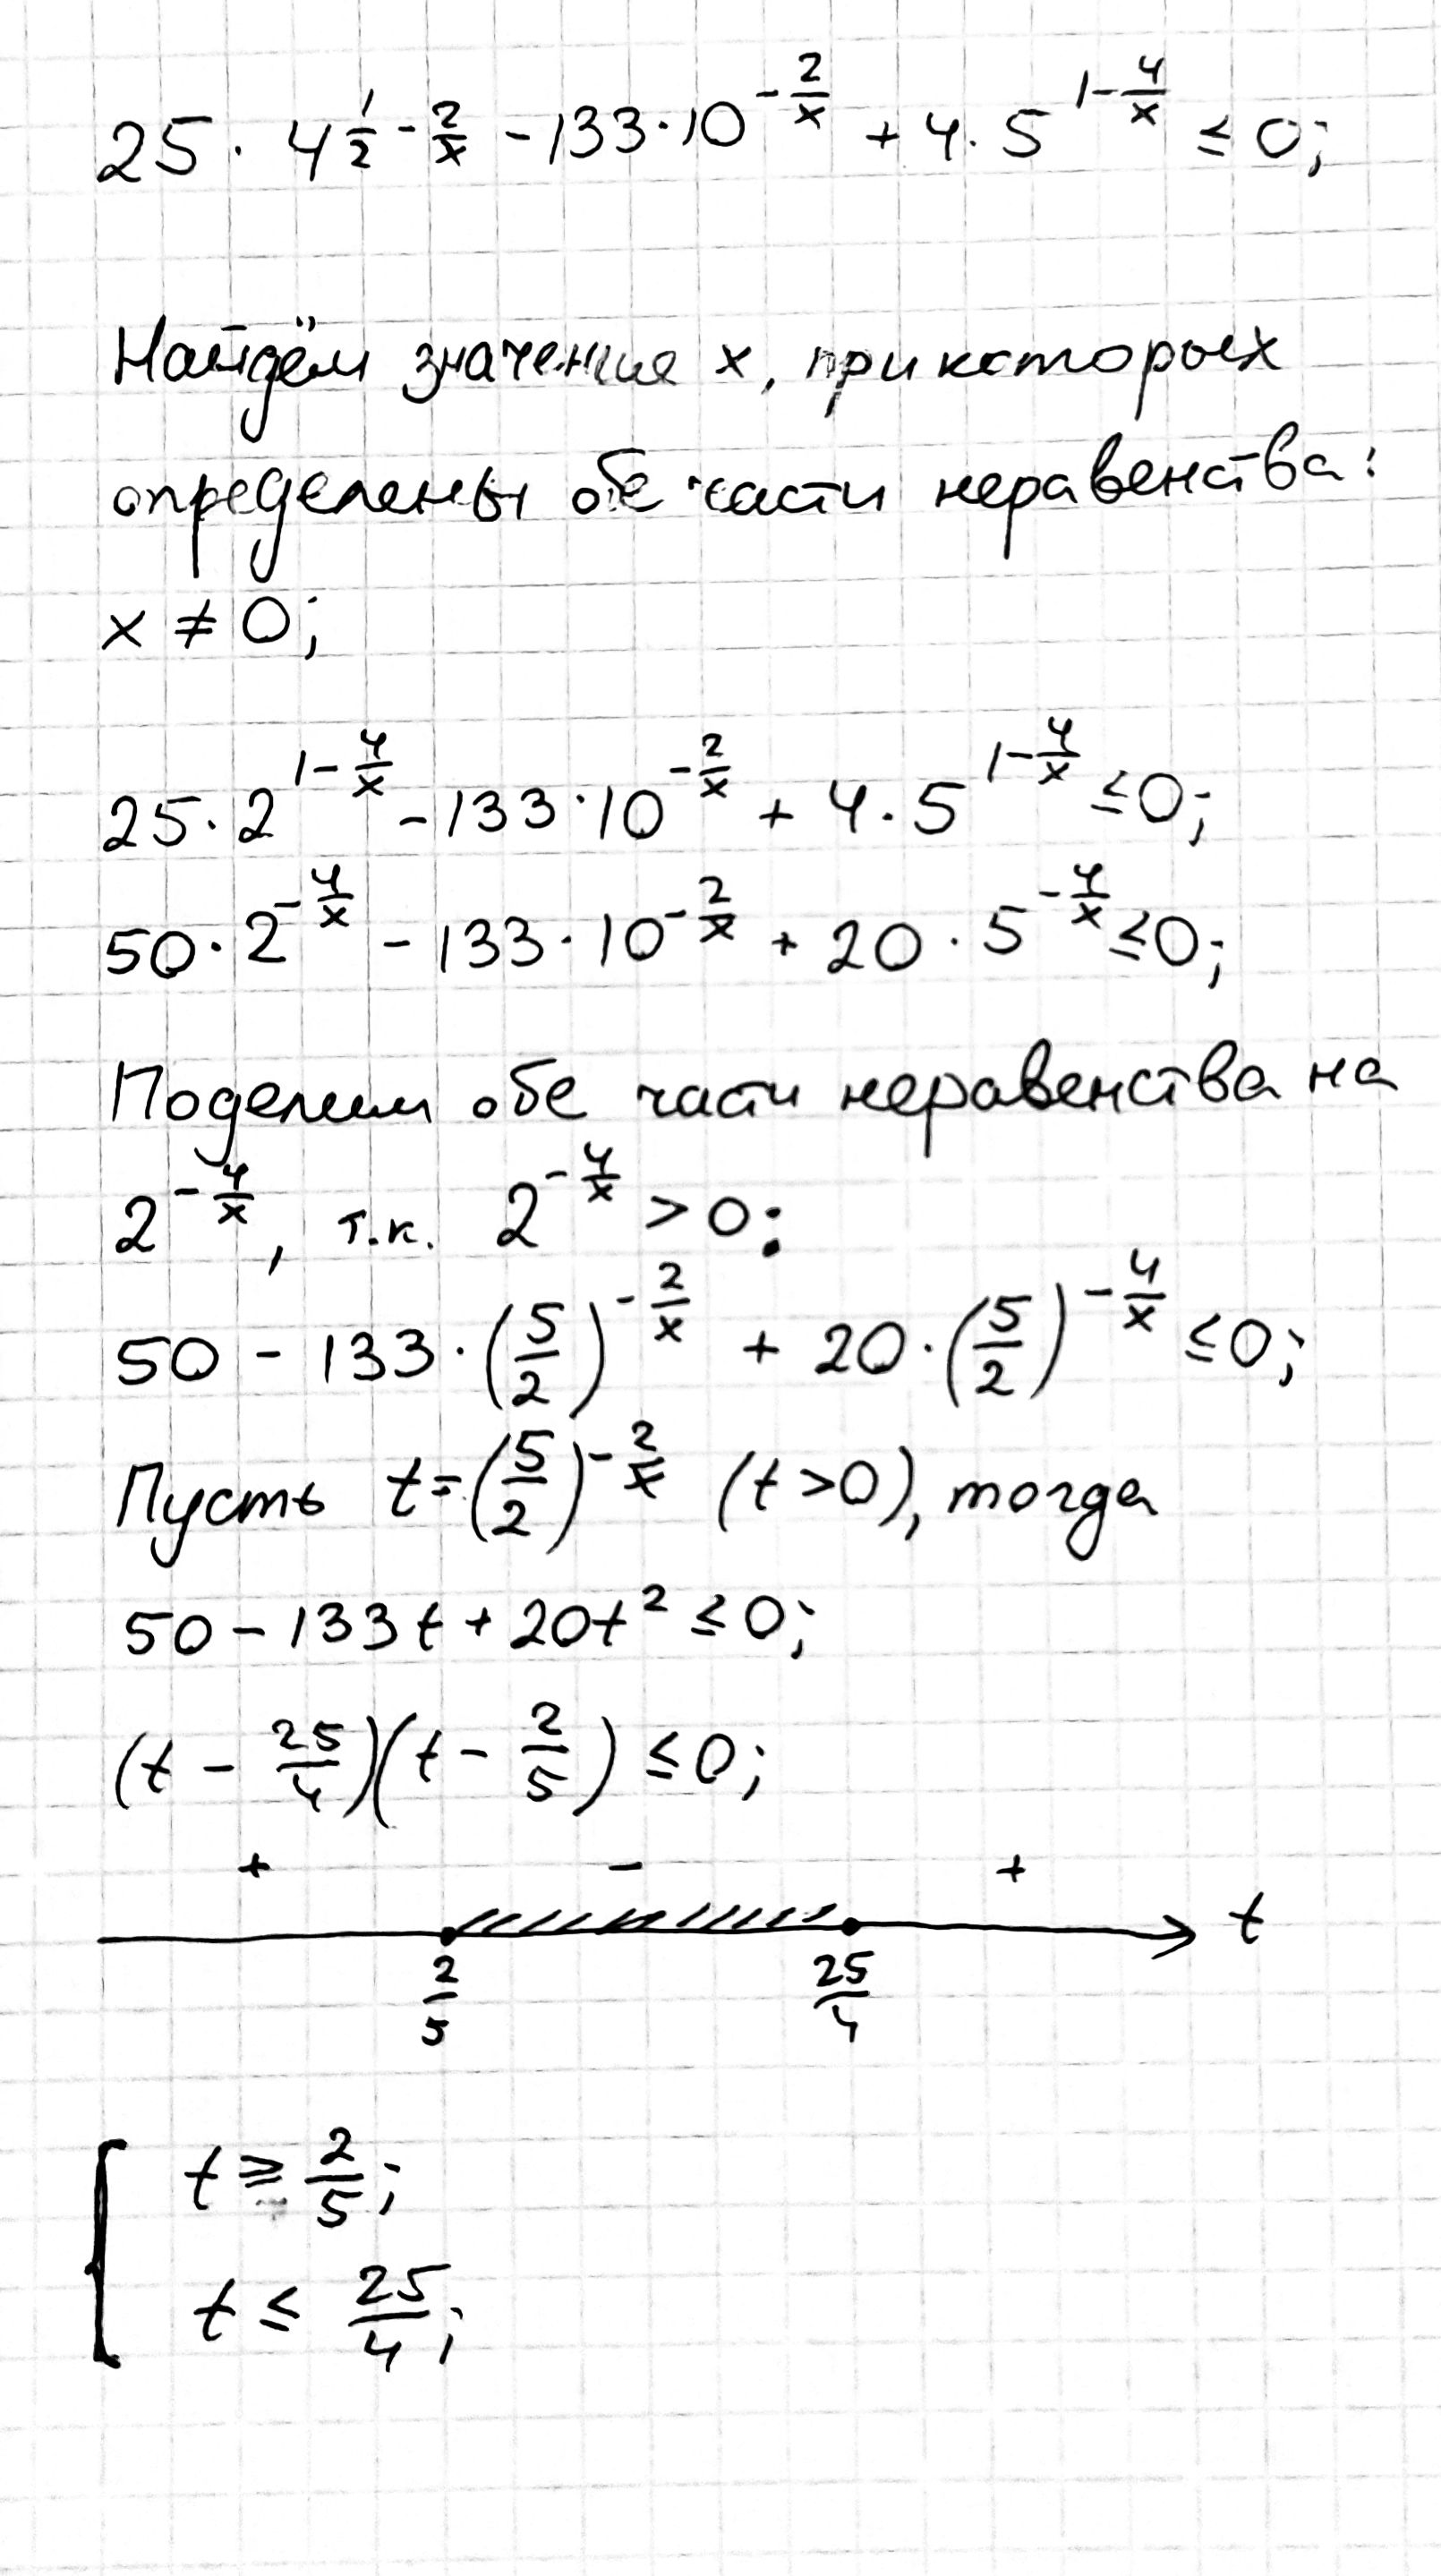 25 · 4^(1/2 - 2/x) - 133 · 10^(-2/x) + 4 · 5^(1 - 4/x) ≤ 0;
Найдём значения x, при которых
определены обе части неравенства:
x ≠ 0;
25 · 2^(1 - 4/x) - 133 · 10^(-2/x) + 4 · 5^(1 - 4/x) ≤ 0;
50 · 2^(-4/x) - 133 · 10^(-2/x) + 20 · 5^(-4/x) ≤ 0;
Поделим обе части неравенства на
2^(-4/x), т.к. 2^(-4/x) > 0:
50 - 133 · (5/2)^(-2/x) + 20 · (5/2)^(-4/x) ≤ 0;
Пусть t = (5/2)^(-2/x) (t > 0), тогда
50 - 133t + 20t² ≤ 0;
(t - 25/4)(t - 2/5) ≤ 0;
+ - +
t
2/5 25/4
{ t ≥ 2/5;
t ≤ 25/4;